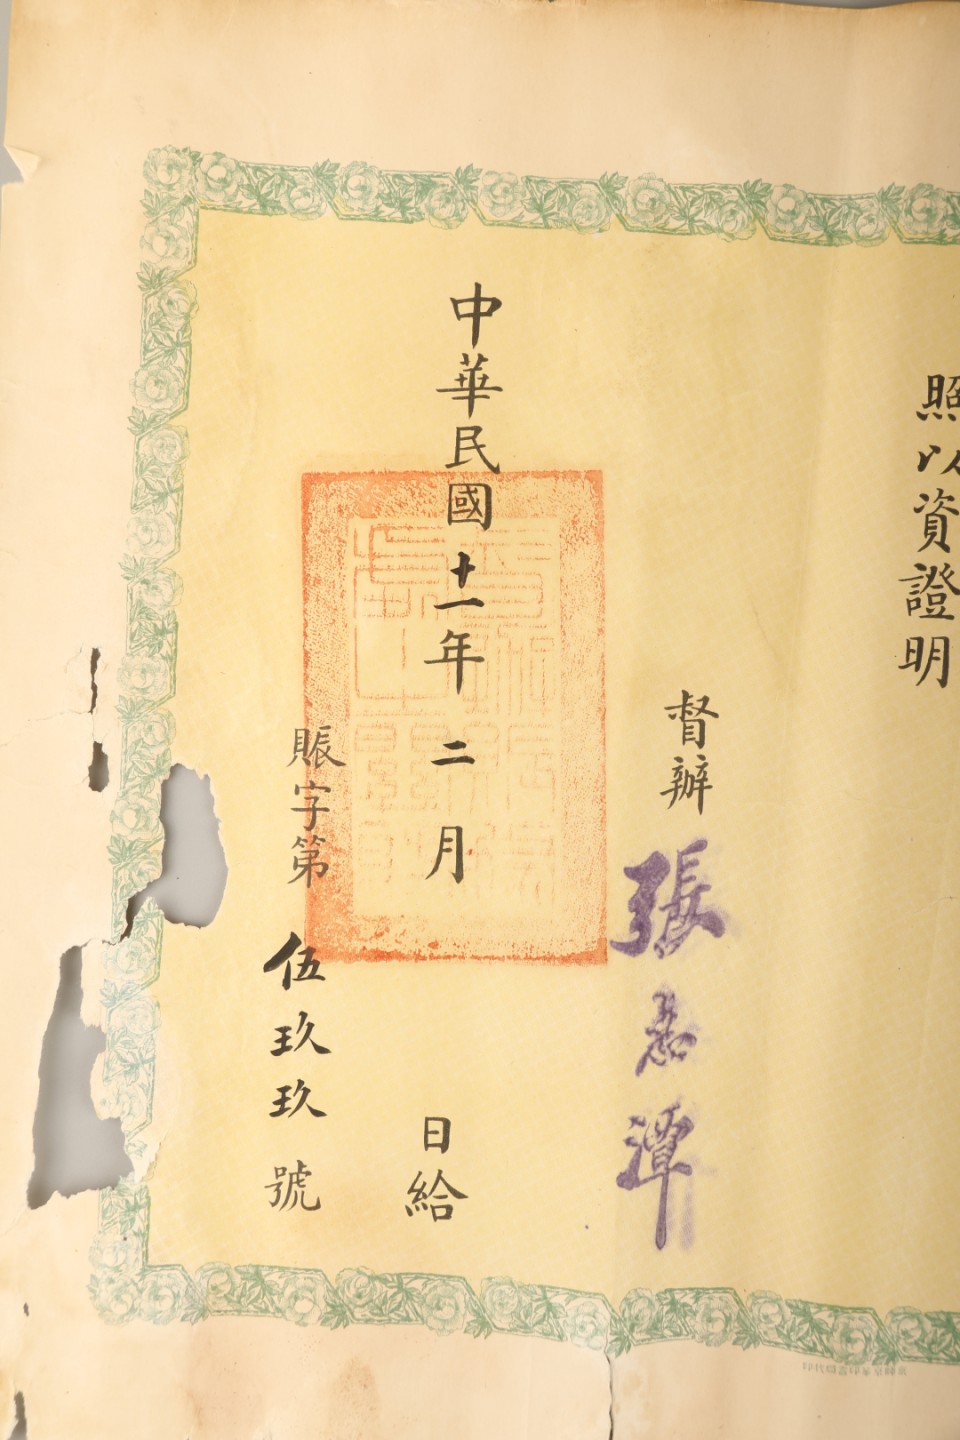 照以資證明
督辦張志潭
中華民國十一年二月 日給
賬字第伍玖玖號